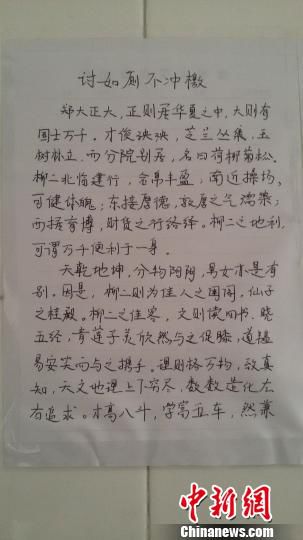 讨如厕不冲檄
郑大正大，正则居华夏之中，大则有
国士万千。才俊泱泱，芝兰丛集，玉
树林立，而分院别居，名曰荷柳菊松。
柳二北临建行，金帛丰盈；南近操场，
可健体魄；东接厚德，敦厚之气满荣；
而括育博，财货之行络绎。柳二之地利，
可谓万千便利于一身。
天乾地坤，分物阴阳，男女亦是有
别。因是，柳二则为佳人之闺阁，仙子
之桂殿。柳二之佳容，文则懷四书，晓
五经，青莲子美欣然与之促膝，道韫
易安笑而与之携手。理则格万物，致真
知，天文地理上下穷尽，数数造化左
右追求。才高八斗，学富五车，然兼
中新網
www.chinanews.com